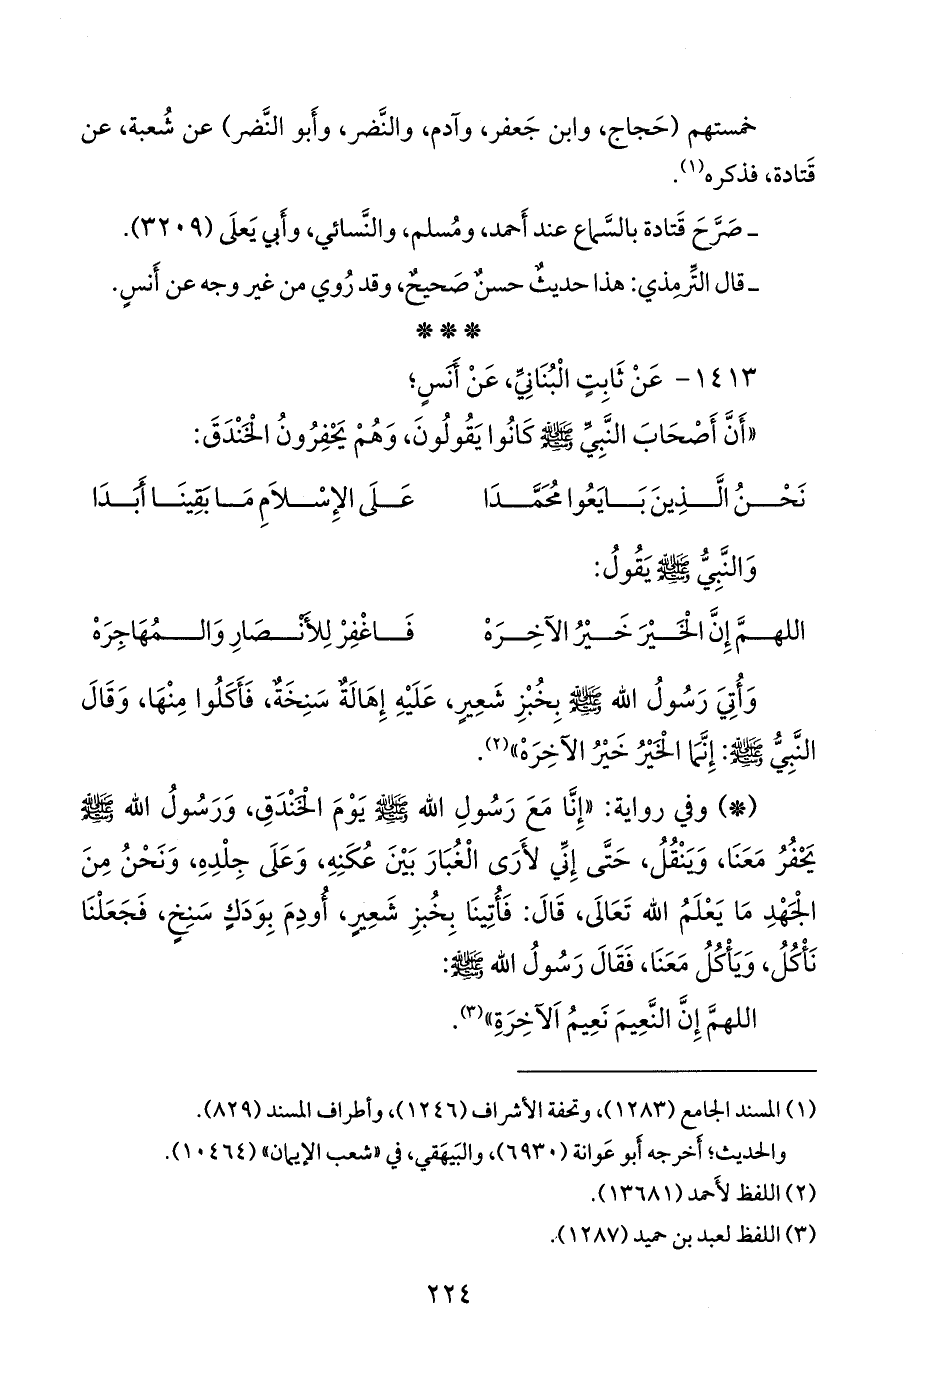 خمستهم (حَجاج، وابن جَعفر، وآدم، والنَّضر، وأَبو النَّضر) عن شُعبة، عن
قَتادة، فذكره(١).
ـ صَرَّحَ قَتادة بالسَّماع عند أَحمد، ومُسلم، والنَّسائي، وأَبي يَعلَى (٣٢٠٩).
ـ قال التِّرمِذي: هذا حديثٌ حسنٌ صَحيحٌ، وقد رُوي من غير وجه عن أَنسٍ.
* * *
١٤١٣- عَنْ ثَابِتٍ الْبُنَانِيِّ، عَنْ أَنَسٍ؛
«أَنَّ أَصْحَابَ النَّبِيِّ ﷺ كَانُوا يَقُولُونَ، وَهُمْ يَحْفِرُونُ الخَنْدَقَ:
نَحْنُ الَّذِينَ بَايَعُوا مُحَمَّدَا عَلَى الإِسْلاَمِ مَا بَقِينَا أَبَدَا
وَالنَّبِيُّ ﷺ يَقُولُ:
اللهمَّ إِنَّ الخَيْرَ خَيْرُ الآخِرَهْ فَاغْفِرْ لِلأَنْصَارِ وَالمُهَاجِرَهْ
وَأُتِيَ رَسُولُ الله ﷺ بِخُبْزِ شَعِيرٍ، عَلَيْهِ إِهَالَةٌ سَنِخَةٌ، فَأَكَلُوا مِنْهَا، وَقَالَ
النَّبِيُّ ﷺ: إِنَّمَا الخَيْرُ خَيْرُ الآخِرَهْ»(٢).
(*) وفي رواية: «إِنَّا مَعَ رَسُولِ الله ﷺ يَوْمَ الخَنْدَقِ، وَرَسُولُ الله ﷺ
يَحْفُرُ مَعَنَا، وَيَنْقُلُ، حَتَّى إِنِّي لأَرَى الْغُبَارَ بَيْنَ عُكَنِهِ، وَعَلَى جِلْدِهِ، وَنَحْنُ مِنَ
الجَهْدِ مَا يَعْلَمُ الله تَعَالَى، قَالَ: فَأُتِينَا بِخُبزِ شَعِيرٍ، أُودِمَ بِوَدَكٍ سَنِخٍ، فَجَعَلْنَا
نَأْكُلُ، وَيَأْكُلُ مَعَنَا، فَقَالَ رَسُولُ الله ﷺ:
اللهمَّ إِنَّ النَّعِيمَ نَعِيمُ اَلآخِرَةِ»(٣).
(١) المسند الجامع (١٢٨٣)، وتحفة الأشراف (١٢٤٦)، وأطراف المسند (٨٢٩).
والحديث؛ أَخرجه أَبو عَوانة (٦٩٣٠)، والبَيهَقي، في «شعب الإيمان» (١٠٤٦٤).
(٢) اللفظ لأحمد (١٣٦٨١).
(٣) اللفظ لعبد بن حميد (١٢٨٧).
٢٢٤